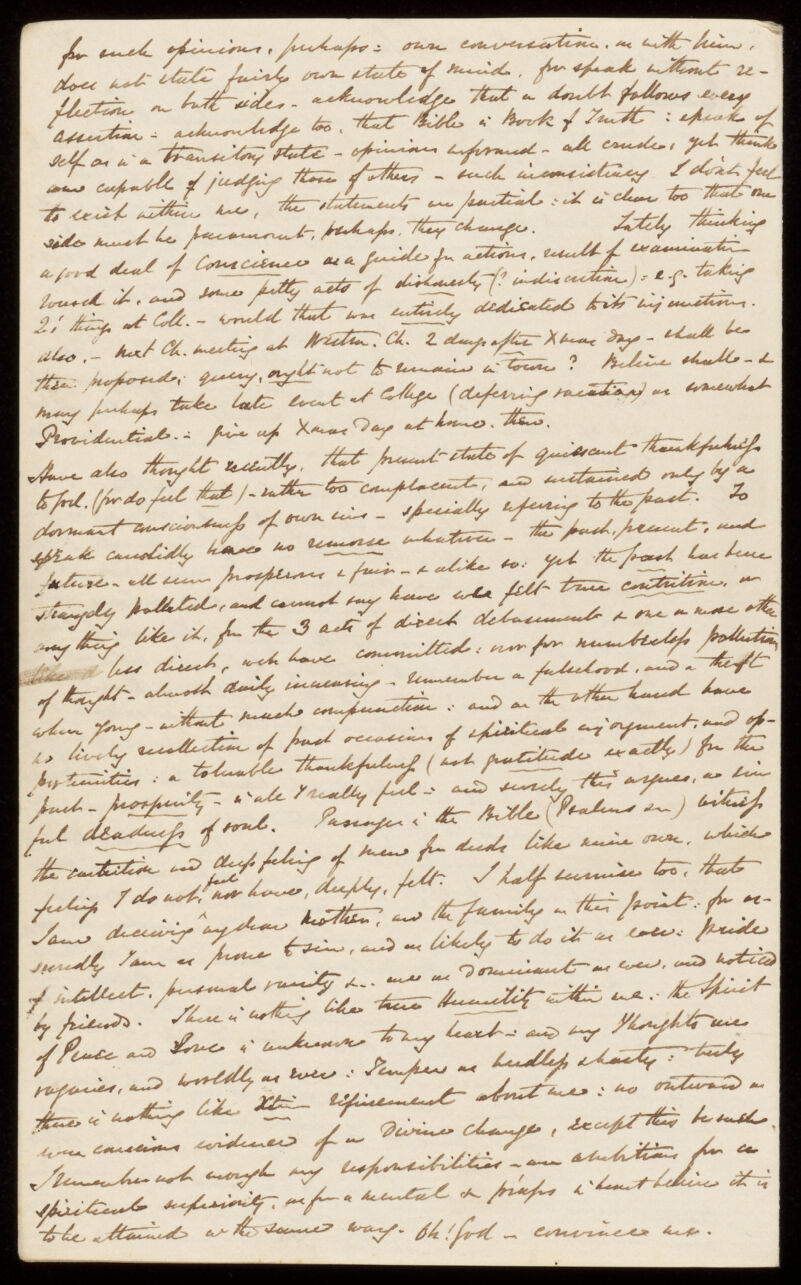 for such opinions, perhaps = own conversation, as with him,
does not state fairly own state of mind, for speak without re-
flection on both sides - acknowledge that a doubt follows every
assertion = acknowledge too, that Bible is Book of Truth : speak of
self as in a transitory state - opinions unformed - all crude, yet think
am capable of judging those of others - such inconsistency I don't feel
to exist within me, the statements are partial : it is clear too that one
side must be paramount, perhaps, they change. Lately thinking
a good deal of Conscience as a guide for actions, result of examination
roused it, and some petty acts of dishonesty (? indiscretion) = e.g. taking
2.! things at Coll. - would that was entirely dedicated to its injunctions.
also, - next Ch. meeting at Westm. Ch. 2 days after Xmas Day - shall be
then proposed; query, ought not to remain in town? Believe shall - &
may perhaps take late event at College (deferring vacation) as somewhat
Providential. = give up Xmas Day at home, then.
Have also thought recently, that present state of quiescent thankfulness
to God, (for do feel that) - rather too complacent, and sustained only by a
dormant consciousness of own sins - specially referring to the past. To
speak candidly have no remorse whatever - the past, present, and
future - all seem prosperous & fair - & alike so : yet the past has been
strangely polluted, and cannot say have ever felt true contrition, or
anything like it, for the 3 acts of direct debasement & one or more other
less direct, wch have committed : nor for numberless pollutions
of thought - almost daily increasing - remember a falsehood, and a theft
when young - without much compunction : and on the other hand have
no lively recollection of past occasions of spiritual enjoyment, and op-
portunities : a tolerable thankfulness (not gratitude exactly) for the
past - prosperity - is all I really feel = and surely this argues, a sin
ful deadness of soul. Passages in the Bible (Psalms &c) witness
the contrition and deep feeling of men for deeds like mine own, which
feelings I do not feel, nor have, deeply, felt. I half surmise too, that
I am deceiving my dear Mother, and the family on this point : for as-
suredly I am as prone to sin, and as likely to do it as ever : pride
of intellect, personal vanity &c. are as dominant as ever, and noticed
by friends. There is nothing like true Humility within me : the Spirit
of Peace and Love is unknown to my heart = and my Thoughts are
vagaries, and worldly as ever : Temper as needless & hasty : truly
there is nothing like Xtian refinement about me : no outward or
even conscious evidence of a Divine change, except this be such.
I remember not enough my responsibilities - am ambitious for a
spiritual superiority, as for a mental & p'raps in heart believe it is
to be attained in the same way. Oh! God - convince me.